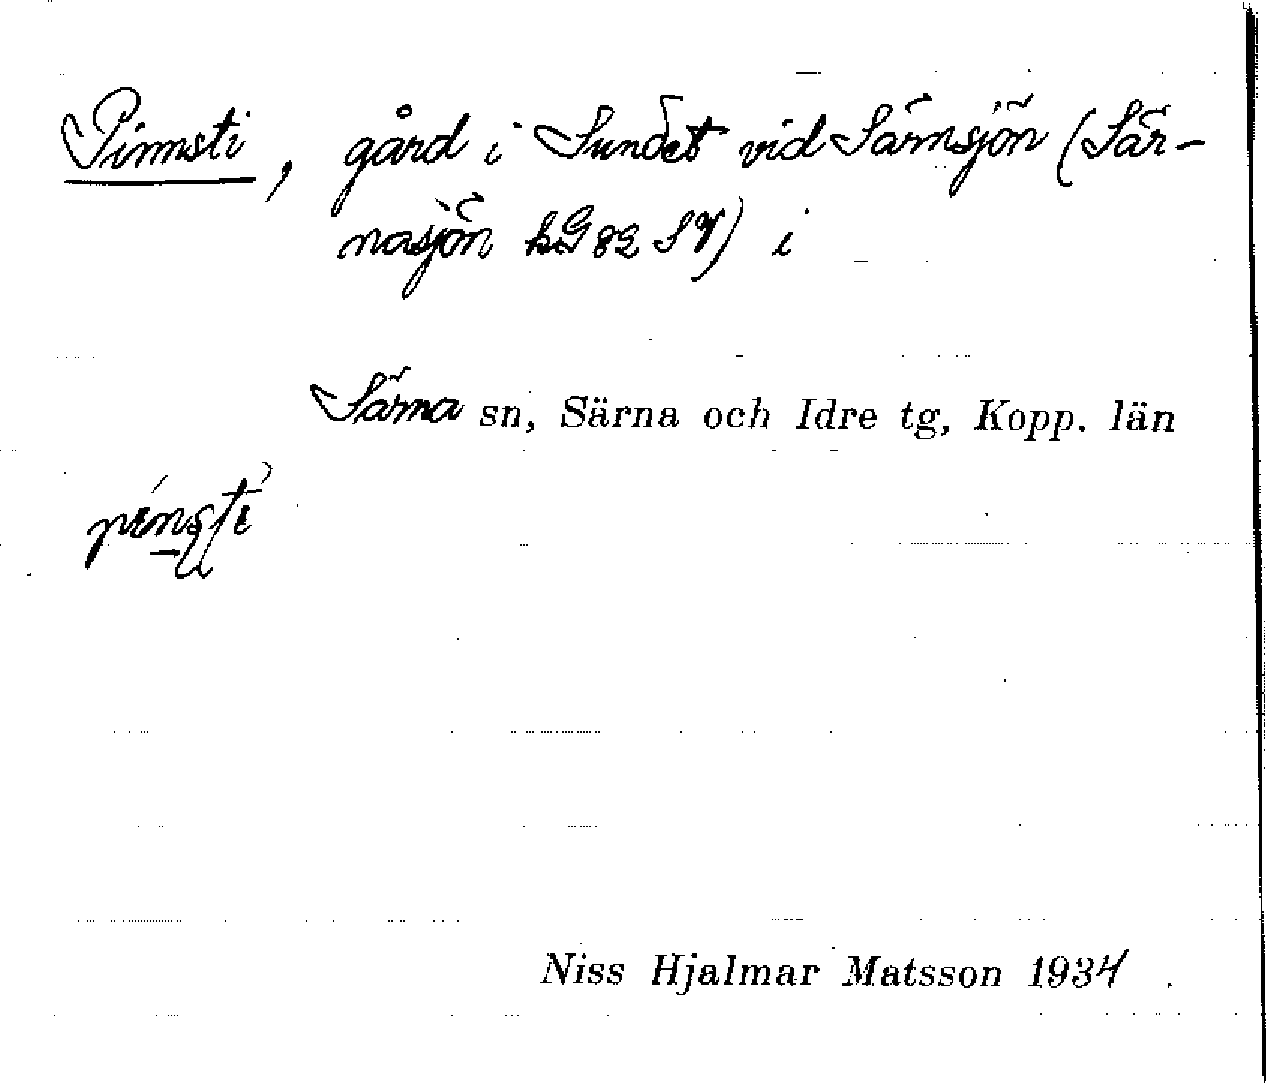 Pinnsti, gård i Sundet vid Särnsjön (Sär-
nasjön kG 82 SV) i
Särna sn, Särna och Idre tg, Kopp. län
Niss Hjalmar Matsson 1934.